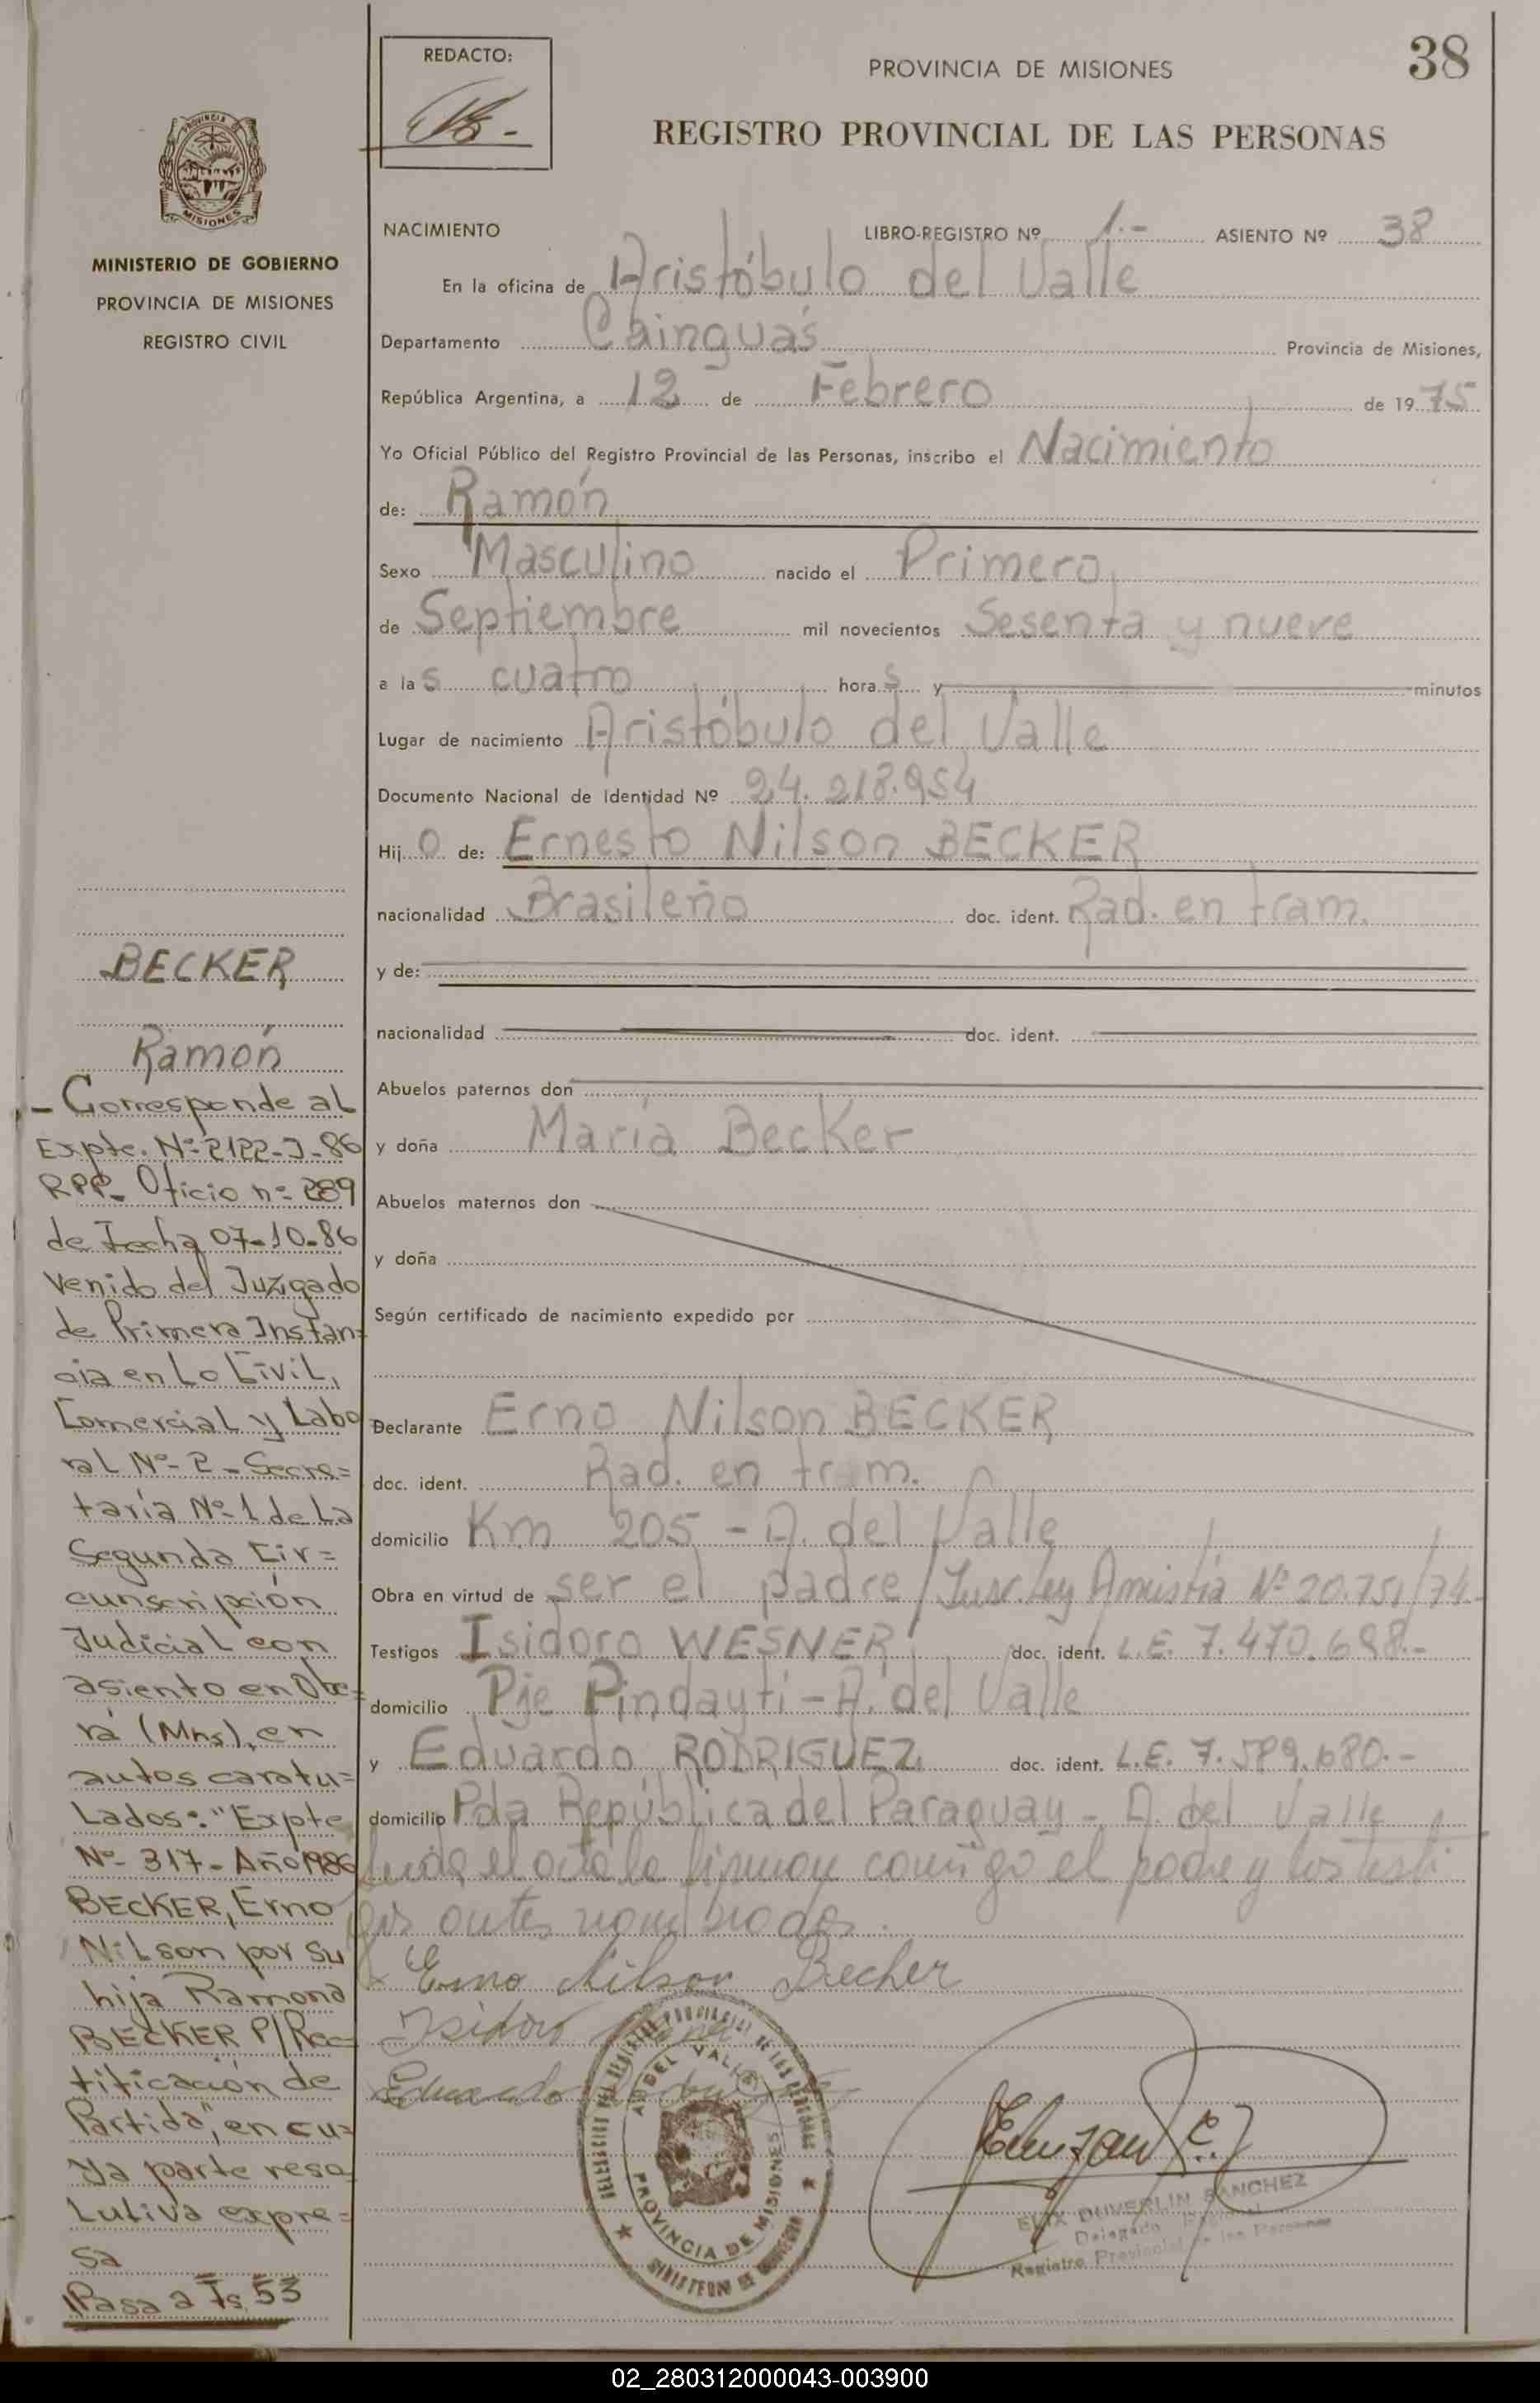 38
REDACTO:
PROVINCIA DE MISIONES
REGISTRO PROVINCIAL DE LAS PERSONAS
PROVINCIA DE
MISIONES
MINISTERIO DE GOBIERNO
PROVINCIA DE MISIONES
REGISTRO CIVIL
NACIMIENTO LIBRO-REGISTRO Nº 1.- ASIENTO Nº 38
En la oficina de Aristóbulo del Valle
Departamento Cainguás Provincia de Misiones,
República Argentina, a 12 de Febrero de 1975
Yo Oficial Público del Registro Provincial de las Personas, inscribo el Nacimiento
de: Ramón
Sexo Masculino nacido el Primero
de Septiembre mil novecientos Sesenta y nueve
a las cuatro horas y minutos
Lugar de nacimiento Aristóbulo del Valle
Documento Nacional de Identidad Nº 24.218.954
Hijo de: Ernesto Nilson BECKER
nacionalidad Brasileño doc. ident. Rad. en tram.
y de:
nacionalidad doc. ident.
Abuelos paternos don
y doña María Becker
Abuelos maternos don
y doña
Según certificado de nacimiento expedido por
Declarante Erno Nilson BECKER
doc. ident. Rad. en tram.
domicilio Km 205 - A. del Valle
Obra en virtud de ser el padre/Inscr. Ley Amistía Nº 20.751/74.-
Testigos Isidoro WESNER doc. ident. L.E. 7.470.698.-
domicilio Pje Pindaytí - A. del Valle
y Eduardo RODRIGUEZ doc. ident. L.E. 7.589.680.-
domicilio Pda República del Paraguay - A. del Valle
leída el acta la firman conmigo el padre y los testi
gos antes nombrados.
Erno Nilson Becker
Isidoro
Eduardo
A. DEL VALLE
PROVINCIA DE MISIONES
ELIX DUVERLIN SANCHEZ
Delegado
Registro Provincial de las Personas
BECKER
Ramón
- Corresponde al
Expte. Nº 2122-J-86
RPP- Oficio nº 289
de Fecha 07-10-86
venido del Juzgado
de Primera Instan=
cia en Lo Civil,
Comercial y Labo
ral Nº- 2 - Secre=
taría Nº 1 de La
Segunda Cir=
cunscripción
Judicial con
asiento en Obe=
rá (Mns), en
autos caratu=
Lados: "Expte
Nº- 317- Año 1986
BECKER, Erno
Nilson por su
hija Ramona
BECKER P/Rec
tificación de
Partida", en cu=
ya parte reso
Lutiva expre=
sa
Pasa a Fs 53
02_280312000043-003900